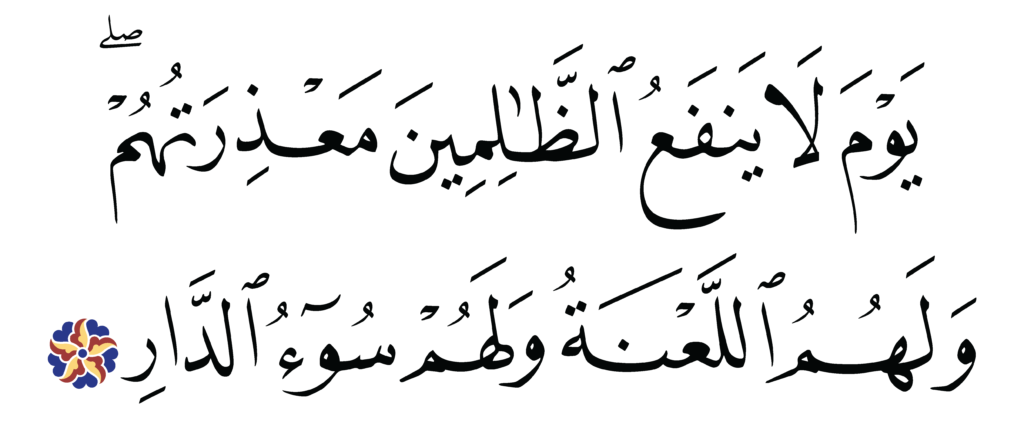 يَوْمَ لَا يَنفَعُ ٱلظَّـٰلِمِينَ مَعْذِرَتُهُمْ ۖ
وَلَهُمُ ٱللَّعْنَةُ وَلَهُمْ سُوٓءُ ٱلدَّارِ